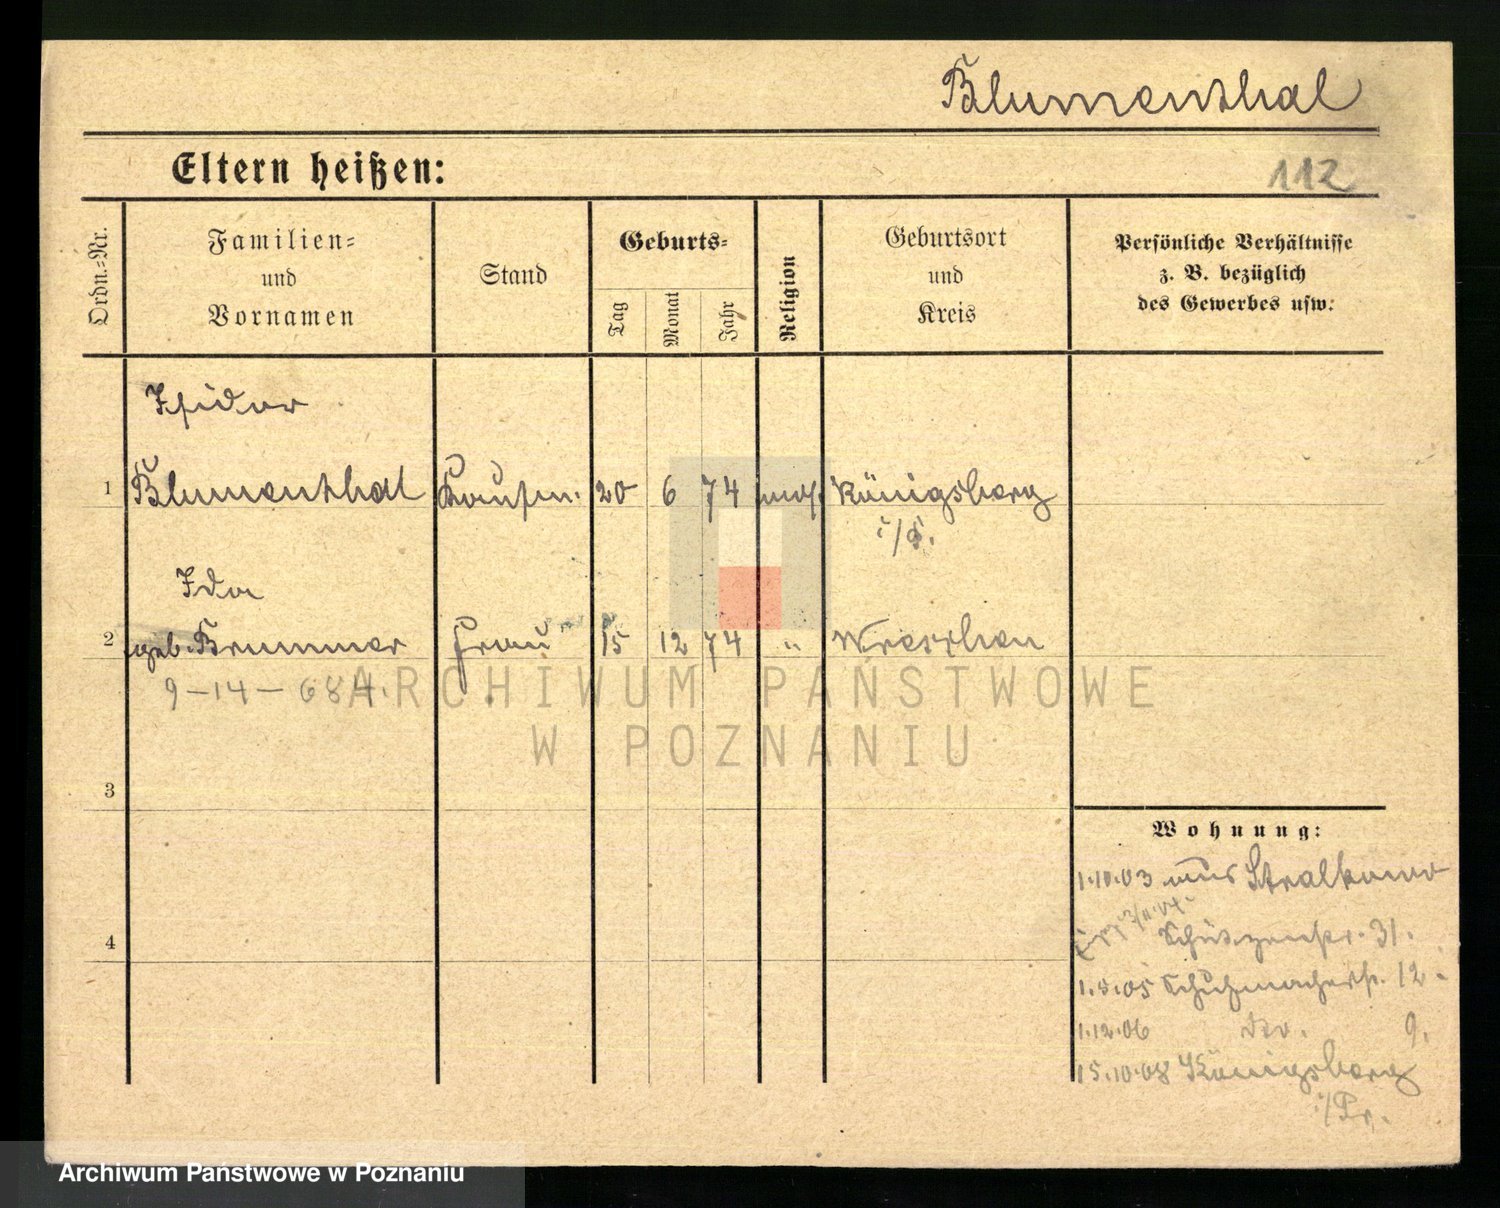 Blumenthal
Eltern heißen:
112
Ordn.=Nr.
Familien=
und
Vornamen
Stand
Geburts=
Tag
Monat
Jahr
Religion
Geburtsort
und
Kreis
Persönliche Verhältnisse
z. B. bezüglich
des Gewerbes usw.
Isidor
1 Blumenthal Kaufm. 20 6 74 mos. Königsberg
Ida
2 geb. Brummer Frau 15 12 74 " Wreschen
9-14-68
ARCHIWUM PAŃSTWOWE
W POZNANIU
3
Wohnung:
1.10.03 aus Stralkowo
4
Schützenstr. 31.
1.5.05 Schuhmacherstr. 12.
1.12.06 9.
15.10.08 Königsberg
i/Pr.
Archiwum Państwowe w Poznaniu